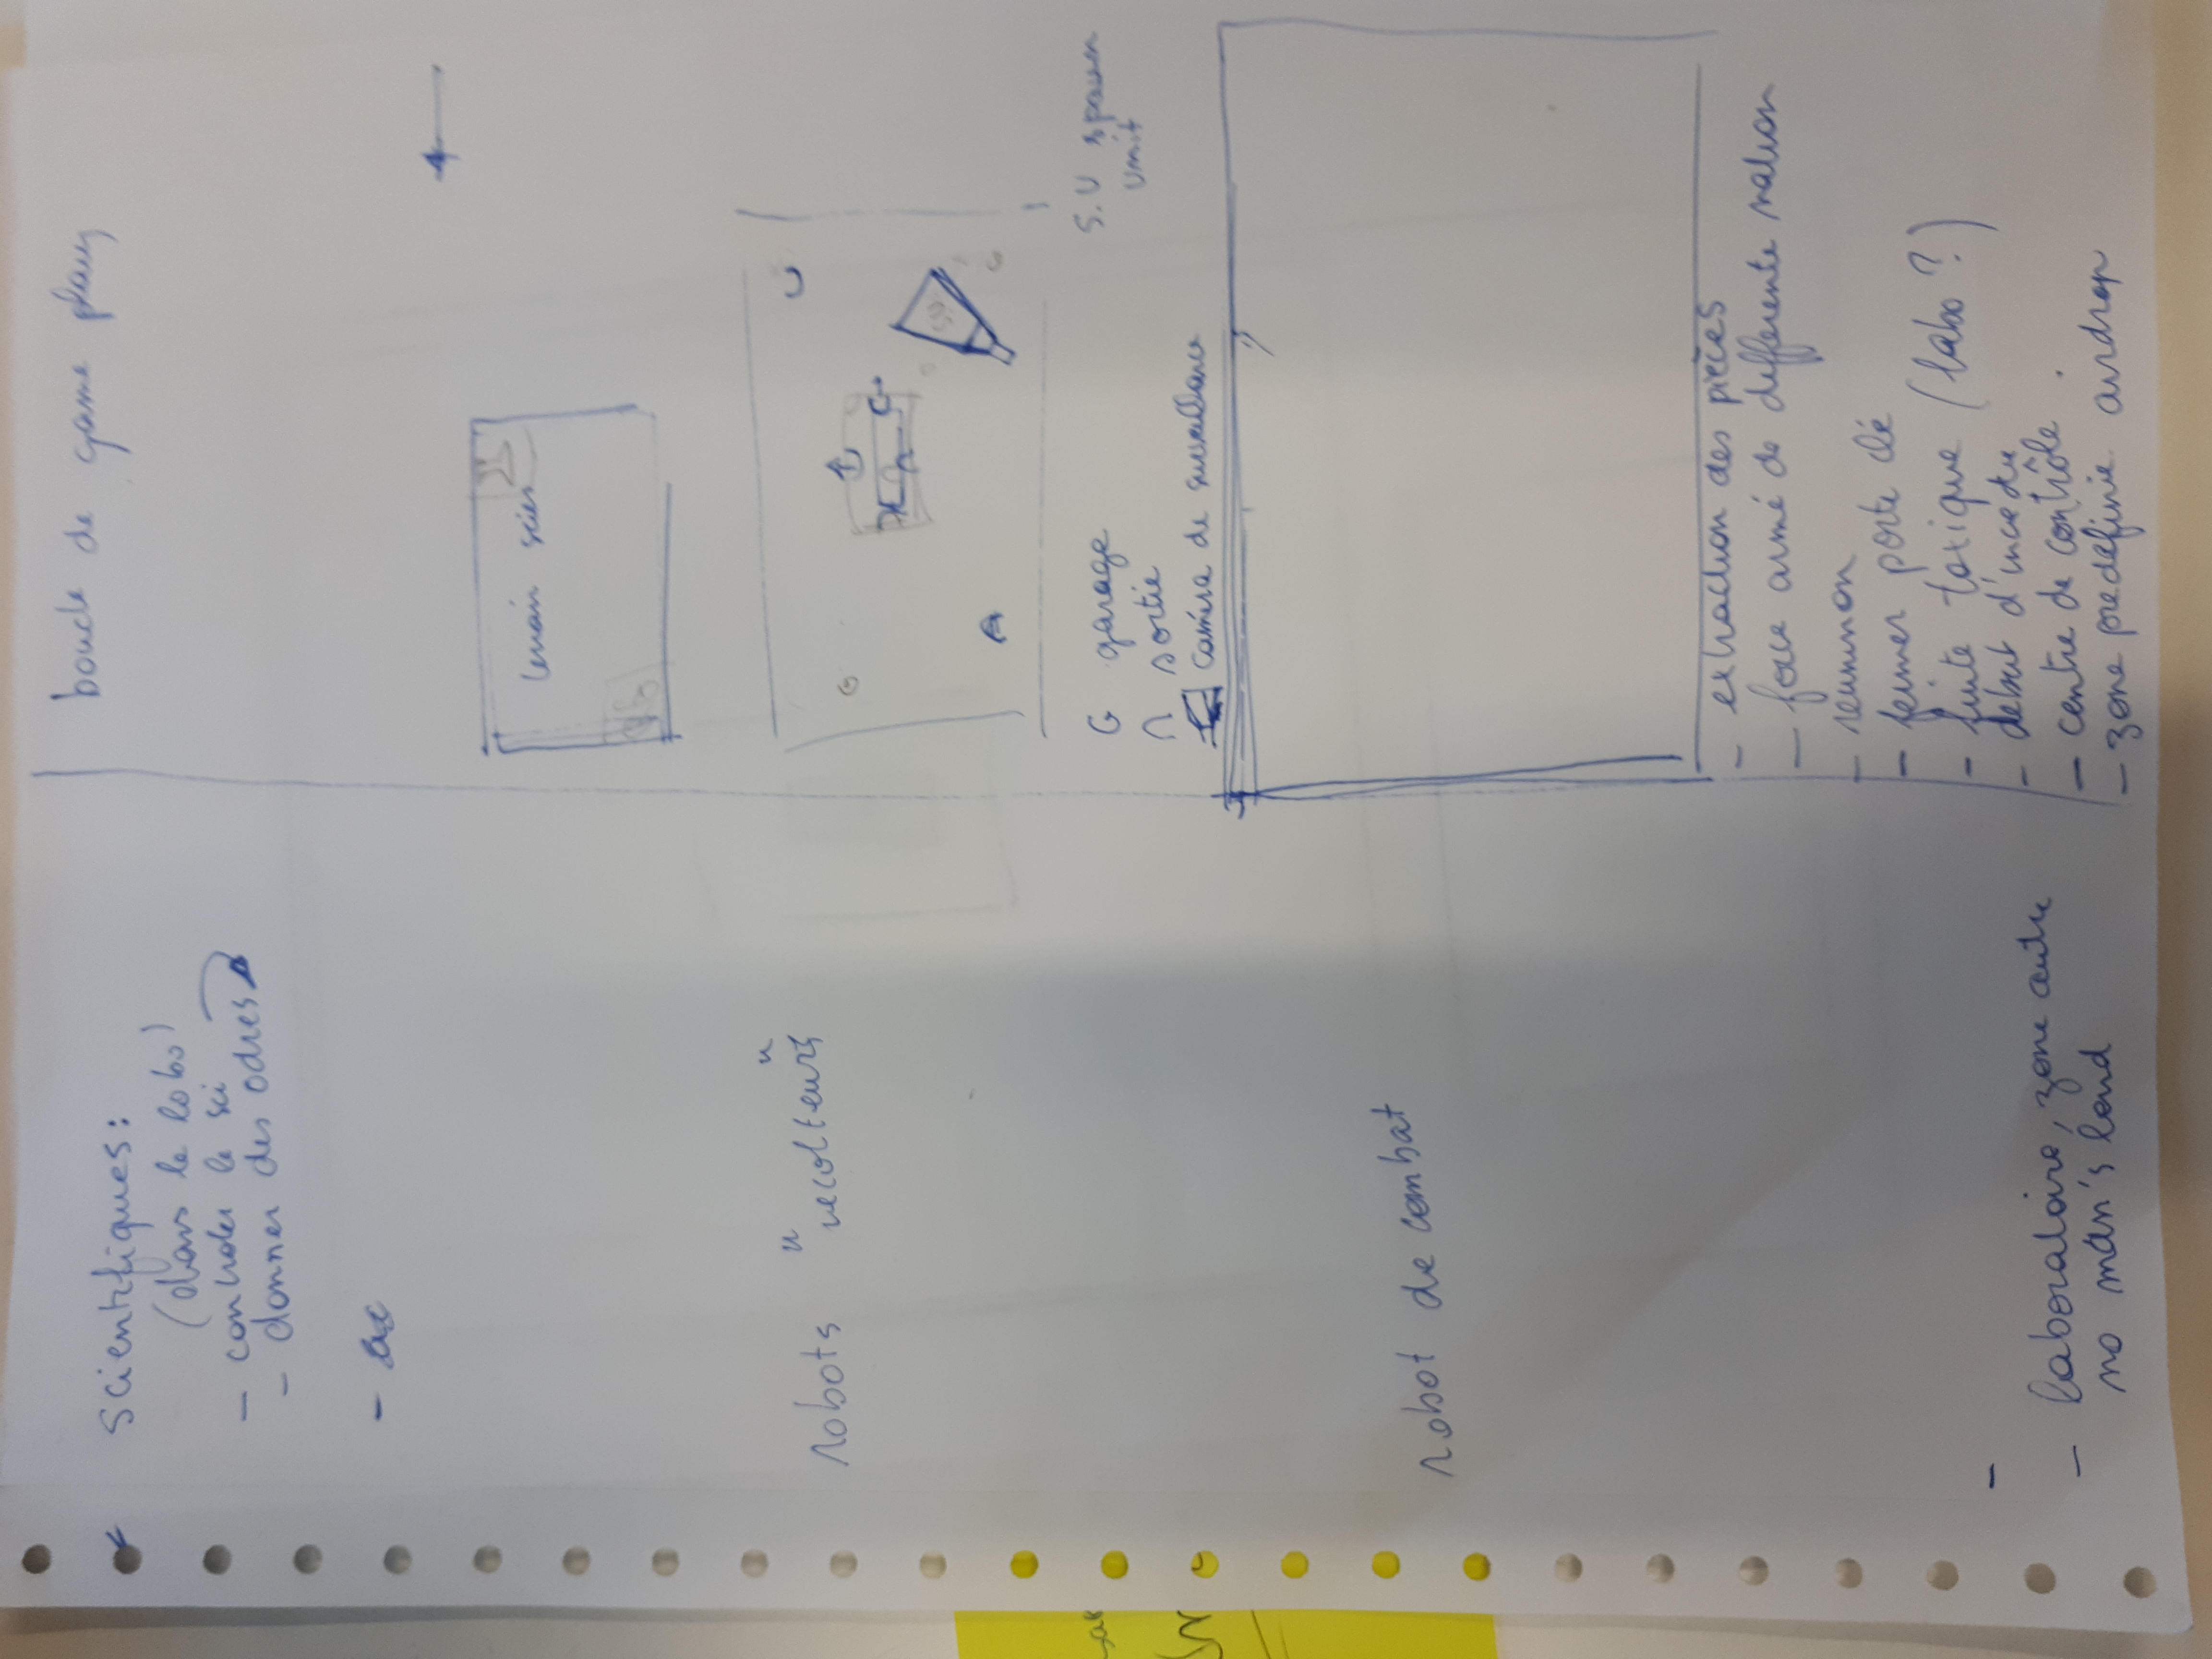 scientifiques:
(dans le labo)
- controler le sci
- donner des odres
-
robots "recolteurs"
robot de combat
-
- laboratoire, zone autre
no man's land
boucle de game play
terrain scien
G
A
G garage
sortie
caméra de surveillance
S.U spawn
unit
- extraction des pièces
- force armé de differente nation
- reunnion
- fermer porte clé
- fuite toxique (labo ?)
- debut d'incedie
- centre de contrôle
- zone predefinie airdrop